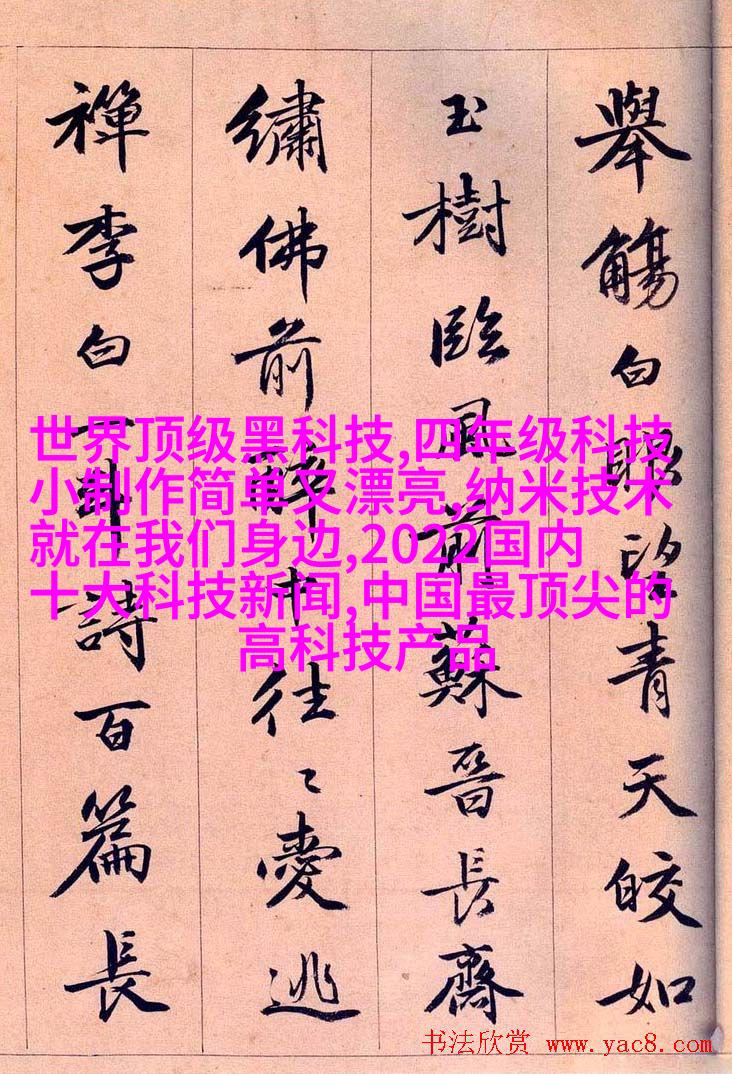 舉觴白眼望青天皎如
玉樹臨風前蘇晉長齋
繡佛前醉中往〻愛逃
禪李白一斗詩百篇長
世界顶级黑科技,四年级科技
小制作简单又漂亮,纳米技术
就在我们身边,2022国内
十大科技新闻,中国最顶尖的
高科技产品
书法欣赏 www.yac8.com